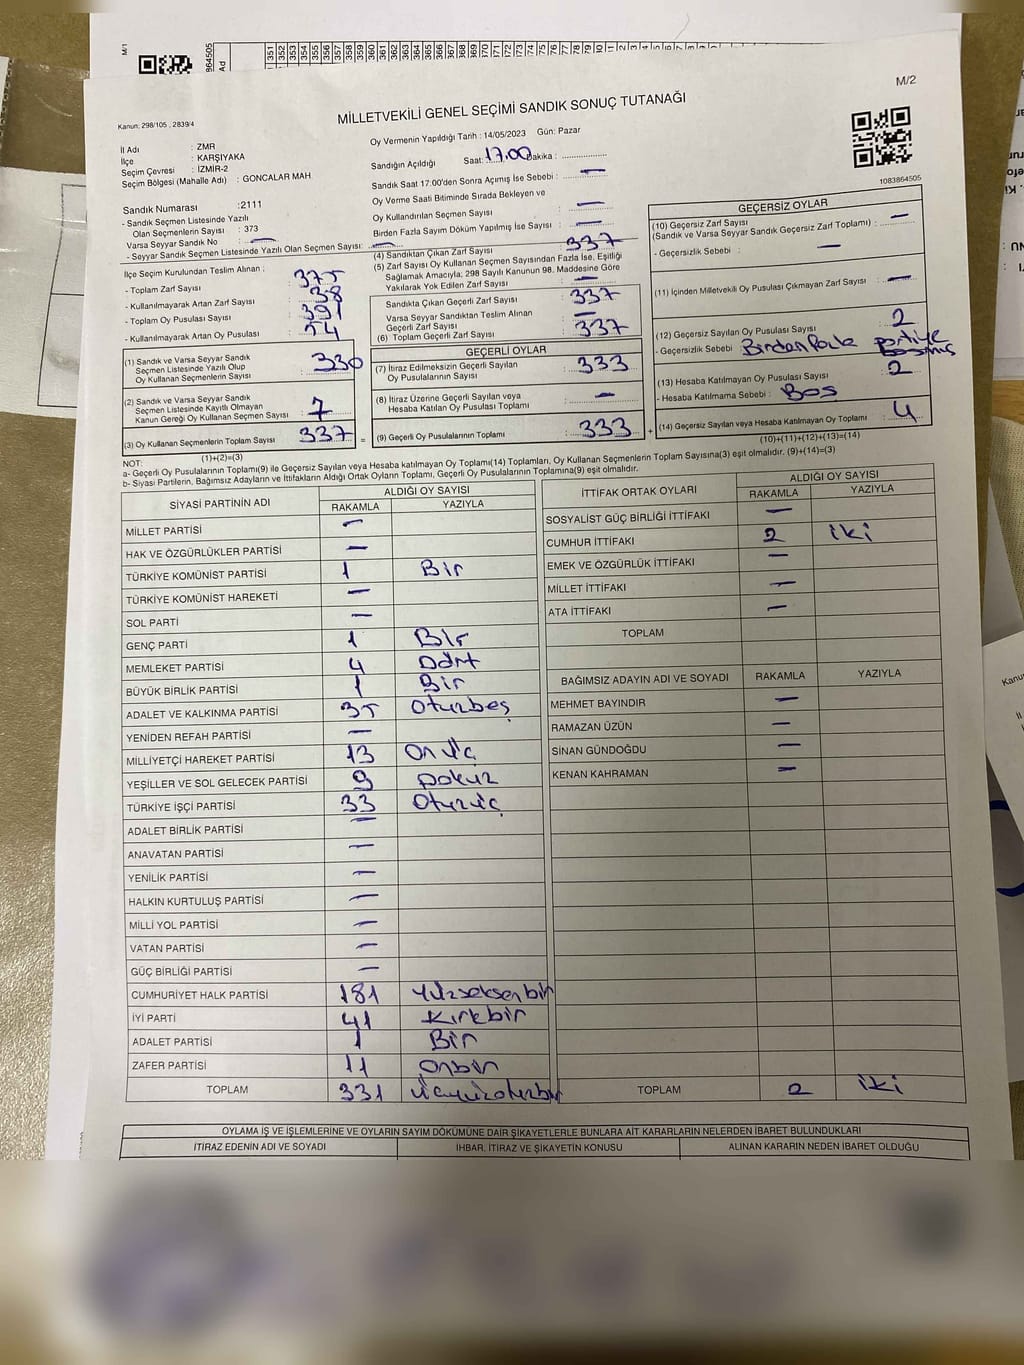 M/1
864505
Ad
351 352 353 354 355 356 357 358 359 360 361 362 363 364 365 366 367 368 369 370 371 372 373 374 375
M/2
MİLLETVEKİLİ GENEL SEÇİMİ SANDIK SONUÇ TUTANAĞI
Kanun: 298/105 , 2839/4
İl Adı : ZMR
İlçe : KARŞIYAKA
Seçim Çevresi : İZMİR-2
Seçim Bölgesi (Mahalle Adı) : GONCALAR MAH
Sandık Numarası :2111
- Sandık Seçmen Listesinde Yazılı
Olan Seçmenlerin Sayısı : 373
Varsa Seyyar Sandık No : —
- Seyyar Sandık Seçmen Listesinde Yazılı Olan Seçmen Sayısı: —
Oy Vermenin Yapıldığı Tarih : 14/05/2023 Gün: Pazar
Sandığın Açıldığı Saat: 17.00 Dakika : ..............
Sandık Saat 17:00'den Sonra Açımış İse Sebebi : —
Oy Verme Saati Bitiminde Sırada Bekleyen ve
Oy Kullandırılan Seçmen Sayısı : —
Birden Fazla Sayım Döküm Yapılmış İse Sayısı : —
1083864505
İlçe Seçim Kurulundan Teslim Alınan ;
- Toplam Zarf Sayısı : 375
- Kullanılmayarak Artan Zarf Sayısı : 38
- Toplam Oy Pusulası Sayısı : 391
- Kullanılmayarak Artan Oy Pusulası : 54
(1) Sandık ve Varsa Seyyar Sandık
Seçmen Listesinde Yazılı Olup
Oy Kullanan Seçmenlerin Sayısı : 330
(2) Sandık ve Varsa Seyyar Sandık
Seçmen Listesinde Kayıtlı Olmayan
Kanun Gereği Oy Kullanan Seçmen Sayısı : 7
(3) Oy Kullanan Seçmenlerin Toplam Sayısı : 337
(1)+(2)=(3)
(4) Sandıktan Çıkan Zarf Sayısı : 337
(5) Zarf Sayısı Oy Kullanan Seçmen Sayısından Fazla İse, Eşitliği
Sağlamak Amacıyla; 298 Sayılı Kanunun 98. Maddesine Göre
Yakılarak Yok Edilen Zarf Sayısı : —
Sandıkta Çıkan Geçerli Zarf Sayısı : 337
Varsa Seyyar Sandıktan Teslim Alınan
Geçerli Zarf Sayısı : —
(6) Toplam Geçerli Zarf Sayısı : 337
GEÇERLİ OYLAR
(7) İtiraz Edilmeksizin Geçerli Sayılan
Oy Pusulalarının Sayısı : 333
(8) İtiraz Üzerine Geçerli Sayılan veya
Hesaba Katılan Oy Pusulası Toplamı : —
(9) Geçerli Oy Pusulalarının Toplamı : 333
GEÇERSİZ OYLAR
(10) Geçersiz Zarf Sayısı
(Sandık ve Varsa Seyyar Sandık Geçersiz Zarf Toplamı) : —
- Geçersizlik Sebebi : —
(11) İçinden Milletvekili Oy Pusulası Çıkmayan Zarf Sayısı : —
(12) Geçersiz Sayılan Oy Pusulası Sayısı : 2
- Geçersizlik Sebebi : Birden Fazla partiye basmış
(13) Hesaba Katılmayan Oy Pusulası Sayısı : 2
- Hesaba Katılmama Sebebi : Boş
(14) Geçersiz Sayılan veya Hesaba Katılmayan Oy Toplamı : 4
(10)+(11)+(12)+(13)=(14)
NOT:
a- Geçerli Oy Pusulalarının Toplamı(9) ile Geçersiz Sayılan veya Hesaba katılmayan Oy Toplamı(14) Toplamları, Oy Kullanan Seçmenlerin Toplam Sayısına(3) eşit olmalıdır. (9)+(14)=(3)
b- Siyasi Partilerin, Bağımsız Adayların ve İttifakların Aldığı Ortak Oyların Toplamı, Geçerli Oy Pusulalarının Toplamına(9) eşit olmalıdır.
SİYASİ PARTİNİN ADI ALDIĞI OY SAYISI
RAKAMLA YAZIYLA
MİLLET PARTİSİ —
HAK VE ÖZGÜRLÜKLER PARTİSİ —
TÜRKİYE KOMÜNİST PARTİSİ 1 Bir
TÜRKİYE KOMÜNİST HAREKETİ —
SOL PARTİ —
GENÇ PARTİ 1 Bir
MEMLEKET PARTİSİ 4 Dört
BÜYÜK BİRLİK PARTİSİ 1 Bir
ADALET VE KALKINMA PARTİSİ 35 Otuzbeş
YENİDEN REFAH PARTİSİ —
MİLLİYETÇİ HAREKET PARTİSİ 13 On üç
YEŞİLLER VE SOL GELECEK PARTİSİ 9 Dokuz
TÜRKİYE İŞÇİ PARTİSİ 33 Otuzüç
ADALET BİRLİK PARTİSİ —
ANAVATAN PARTİSİ —
YENİLİK PARTİSİ —
HALKIN KURTULUŞ PARTİSİ —
MİLLİ YOL PARTİSİ —
VATAN PARTİSİ —
GÜÇ BİRLİĞİ PARTİSİ —
CUMHURİYET HALK PARTİSİ 181 Yüzseksenbir
İYİ PARTİ 41 Kırkbir
ADALET PARTİSİ 1 Bir
ZAFER PARTİSİ 11 Onbir
TOPLAM 331 Üçyüzotuzbir
İTTİFAK ORTAK OYLARI ALDIĞI OY SAYISI
RAKAMLA YAZIYLA
SOSYALİST GÜÇ BİRLİĞİ İTTİFAKI —
CUMHUR İTTİFAKI 2 iki
EMEK VE ÖZGÜRLÜK İTTİFAKI —
MİLLET İTTİFAKI —
ATA İTTİFAKI —
TOPLAM
BAĞIMSIZ ADAYIN ADI VE SOYADI RAKAMLA YAZIYLA
MEHMET BAYINDIR —
RAMAZAN ÜZÜN —
SİNAN GÜNDOĞDU —
KENAN KAHRAMAN —
TOPLAM 2 iki
OYLAMA İŞ VE İŞLEMLERİNE VE OYLARIN SAYIM DÖKÜMÜNE DAİR ŞİKAYETLERLE BUNLARA AİT KARARLARIN NELERDEN İBARET BULUNDUKLARI
İTİRAZ EDENİN ADI VE SOYADI İHBAR, İTİRAZ VE ŞİKAYETİN KONUSU ALINAN KARARIN NEDEN İBARET OLDUĞU